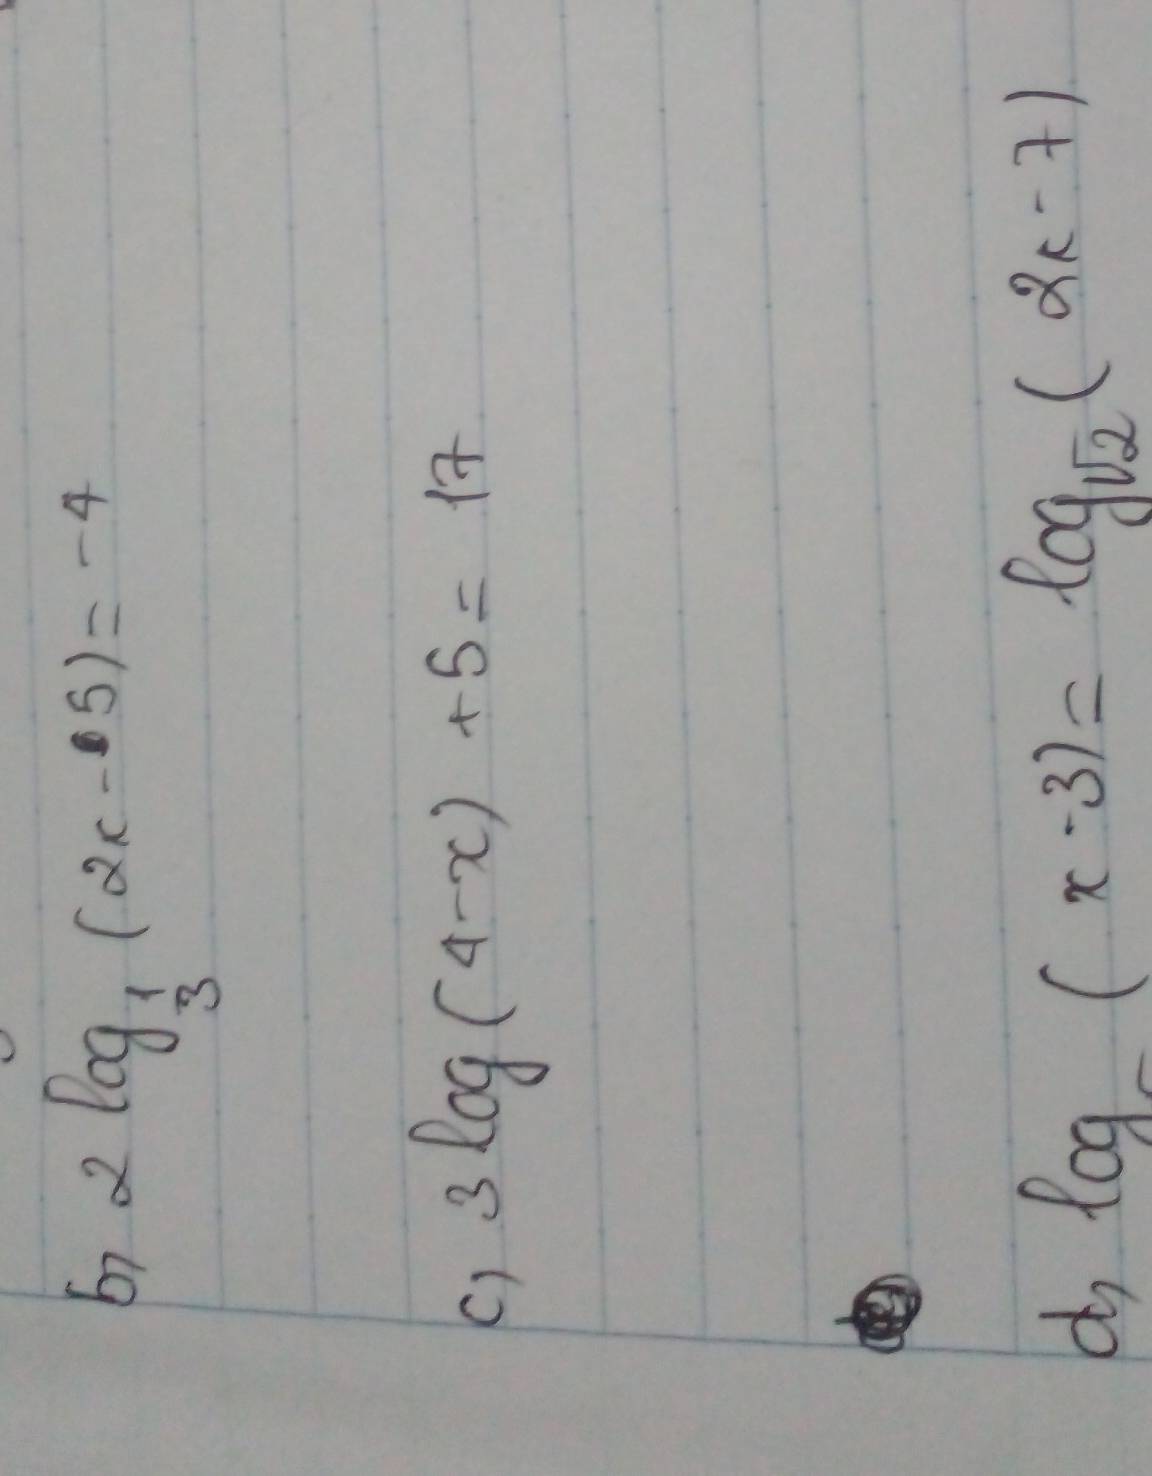 b, 2 log 1/3 (2x - 5) = -4
c, 3 log (4-x) + 5 = 17
d, log (x-3) = log √2 (2x-7)